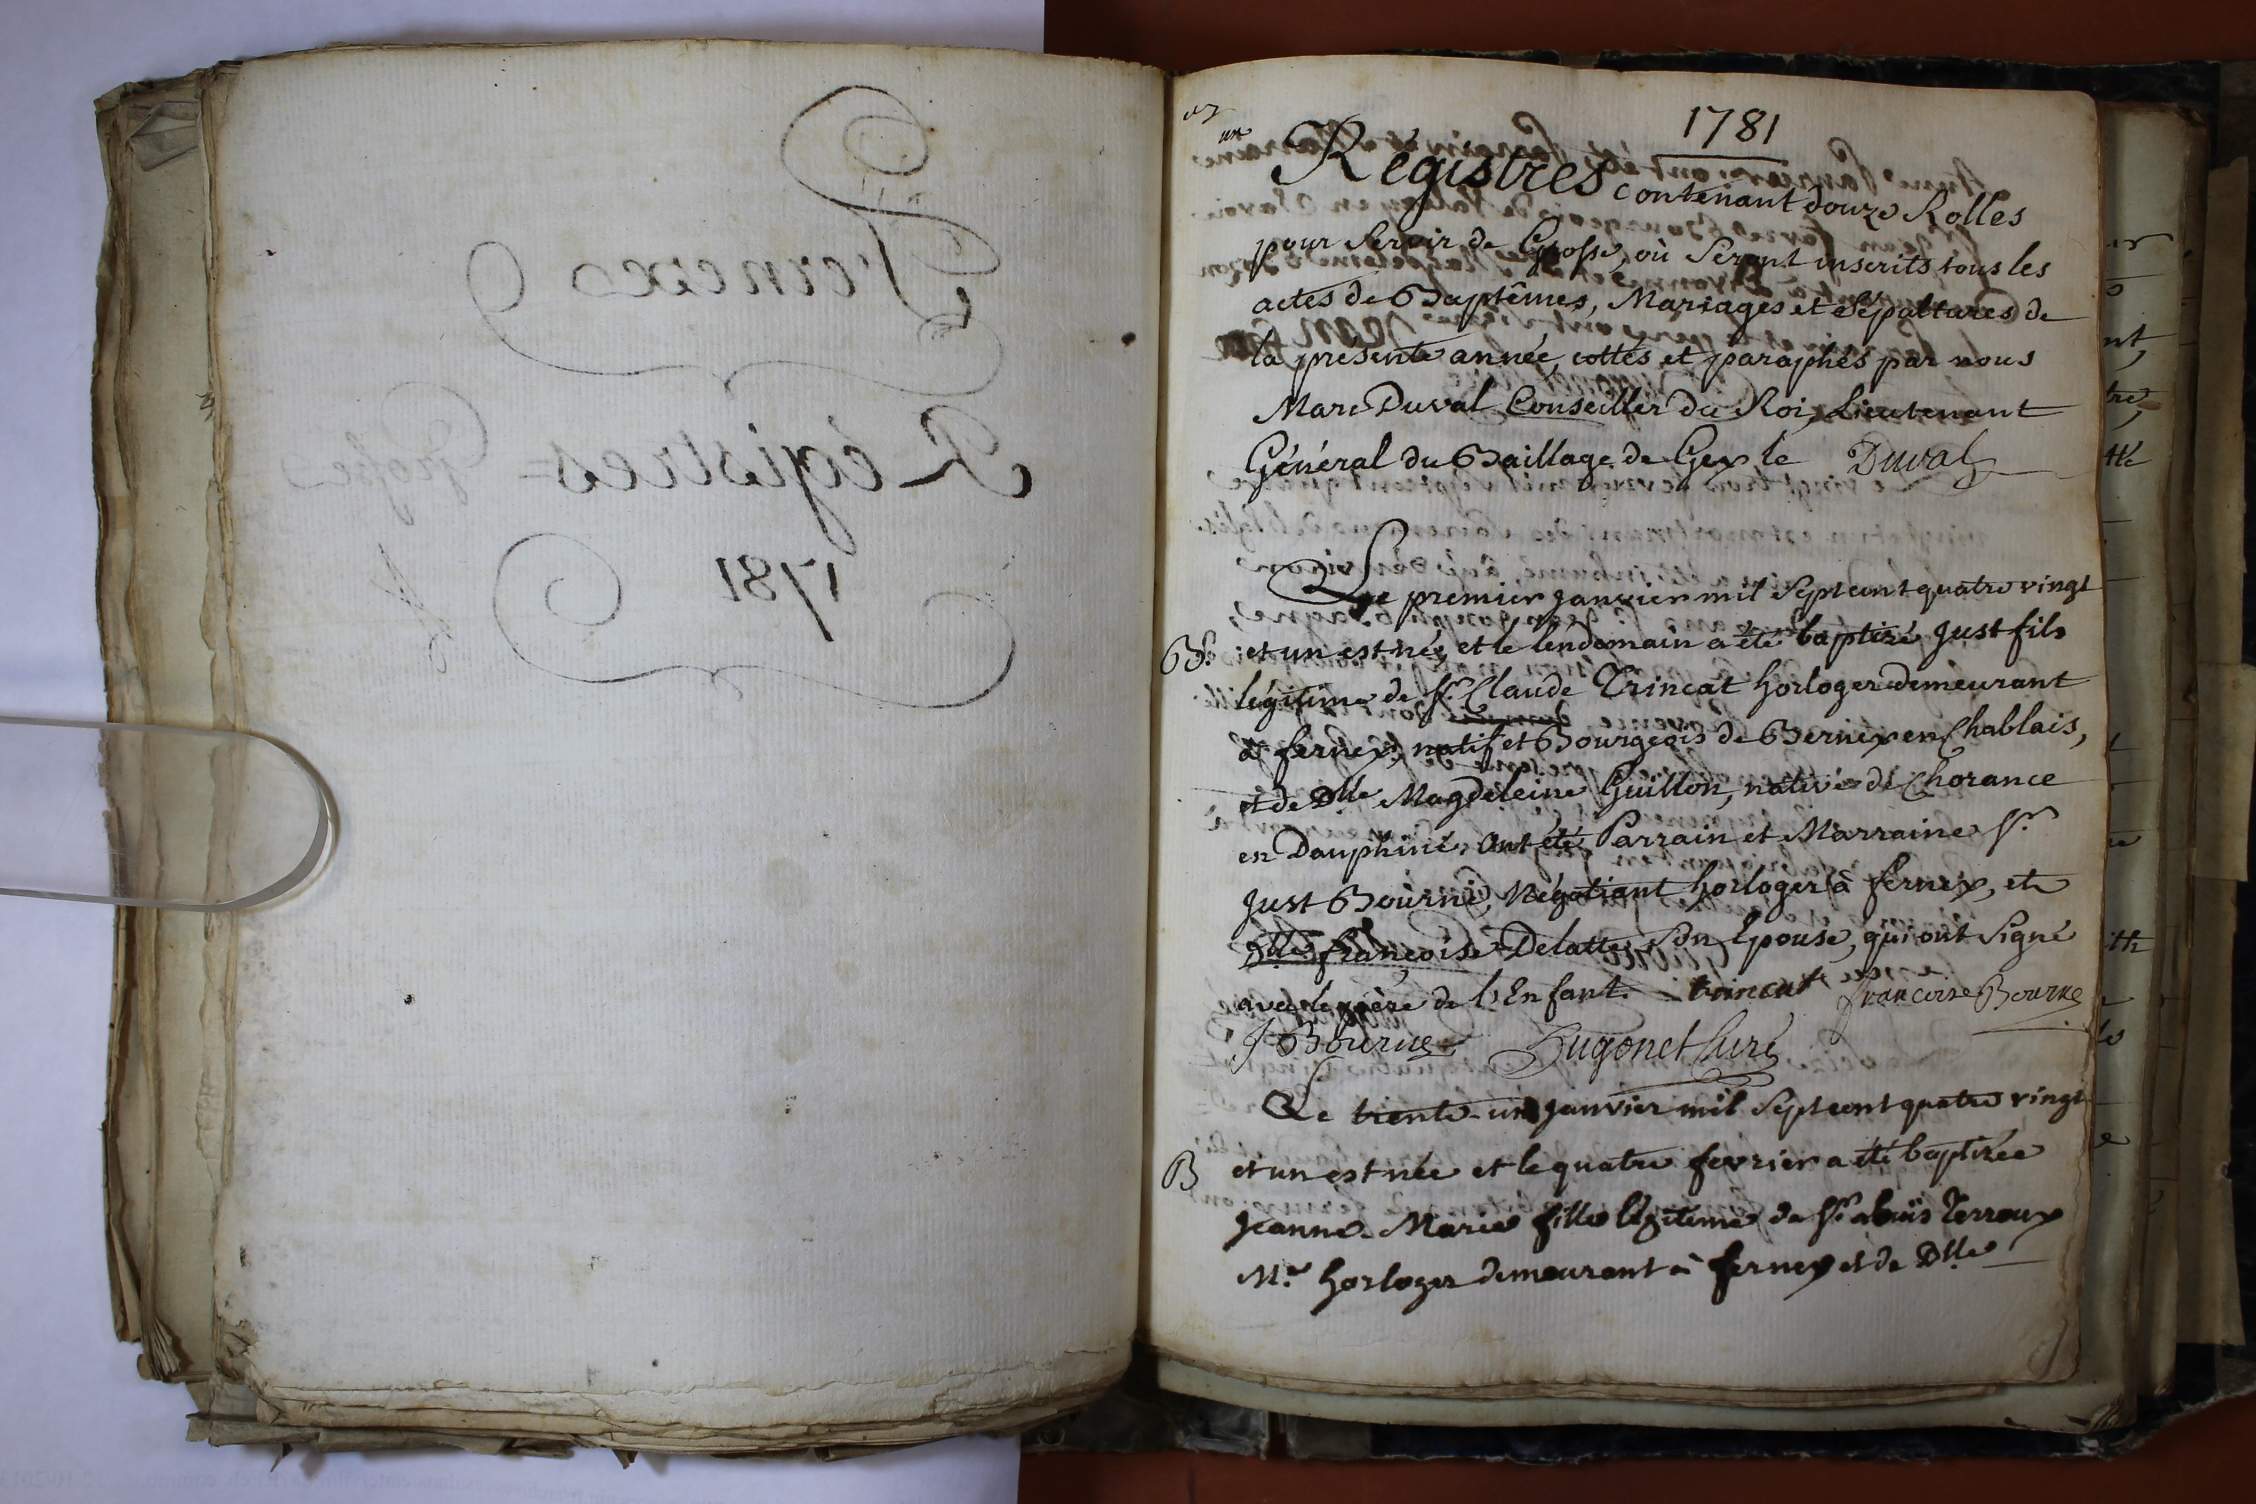 Fernex
Régistres - Grosse
1781
1781
un
Régistres contenant douze Rolles
pour servir de Grosse, où seront inscrits tous les
actes de Baptêmes, Mariages et Sépultures de
la présente année, cottés et paraphés par nous
Marc Duval Conseiller du Roi, Lieutenant
Général du Baillage de Gex le Duval
Le premier janvier mil sept cent quatre vingt
B. et un est né, et le lendemain a été baptizé Just fils
légitime de Sr. Claude Trincat horloger demeurant
à fernex, natif et Bourgeois de Bernex en Chablais,
et de Dlle Magdeleine Guillon, native de Chorance
en Dauphiné. Ont été Parrain et Marraine Sr.
Just Bourne, Négotiant horloger à fernex, et
Dlle françoise Delatte son Epouse, qui ont signé
avec le père de l'Enfant. trincat francoise Bourne
J Bourne Hugonet Curé
Le trente-un janvier mil sept cent quatre vingt
B et un est née et le quatre fevrier a été baptizée
Jeanne-Marie fille légitime de Sr. Louis Terroux
M.e horloger demeurant à fernex et de Dlle